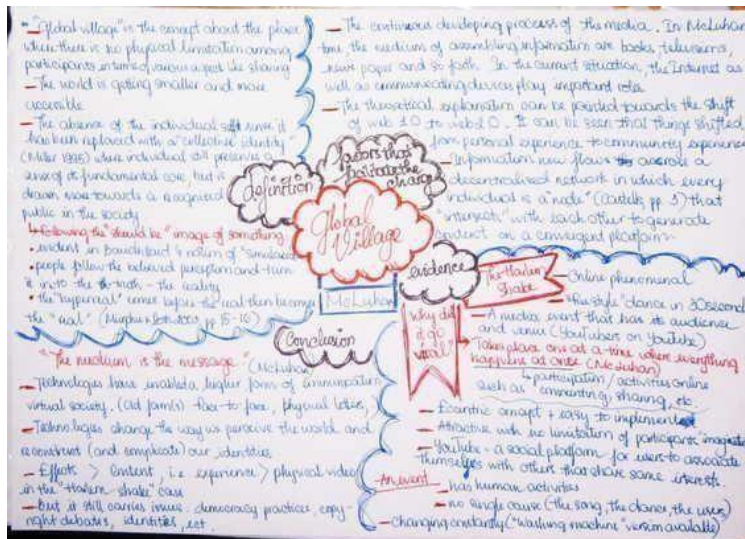 "Global village" is the concept about the place
where there is no physical limitation among
participants in terms of various aspect like sharing
The world is getting smaller and more
accessible
The absence of the individual self since it
has been replaced with a "collective identity"
(Miller 1995) where individual still preserves a
sense of its fundamental core, but is
drawn more towards a recognized
public in the society
following the "should be" image of something
evident in Baudrillard's notion of "simulacra"
people follow the believed perception and turn
it in to the truth - the reality
the "hyperreal" comes before the real then become
the "real" (Murphie & Potts 2003, pp 15-16)
definition
factors that
facilitate the
change
Global
Village
McLuhan
evidence
Conclusion
The continuous developing process of the media. In McLuhan
time, the mediums of assembling information are books, televisions,
news paper and so forth. In the current situation, the Internet as
well as communicating devices play important roles
The theoretical explanation can be pointed towards the shift
of web 1.0 to web 2.0. It can be seen that things shifted
from personal experience to community experience
Information now flows accross a
decentralised network in which every
individual is a "node" (Castells, pp 5) that
"intersects" with each other to generate
content on a convergent platform
The Harlem
Shake
Online phenomenal
"Free style" dance in 30 second
A media event that has its audience
and venue (YouTubers on YouTube)
Takes place on at a time where everything
happens at once (McLuhan)
participation / activities online
such as "commenting, sharing, etc.
Why did
it go
viral"
Eccentric concept + easy to implement
Attractive with no limitation of participants' imagination
YouTube - a social platform for users to associate
themselves with others that share same interests.
An event
has human activities
no single cause (the song, the dance, the user)
changing constantly ("Washing machine" version available)
"The medium is the message" (McLuhan)
Technologies have enabled a higher form of communication
virtual society. (Old form(s) face to face, physical letters,)
Technologies change the way we perceive the world and
reconstruct (and complicate) our identities
Effects > Content, i.e experience > physical video
in the "Harlem shake" case
But it still carries issue: democracy practices, copy-
right debates, identities, ect.